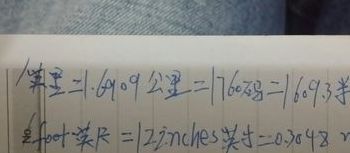 1英里=1.6909公里=1760码=1609.3米
1foot英尺=12inches英寸=0.3048